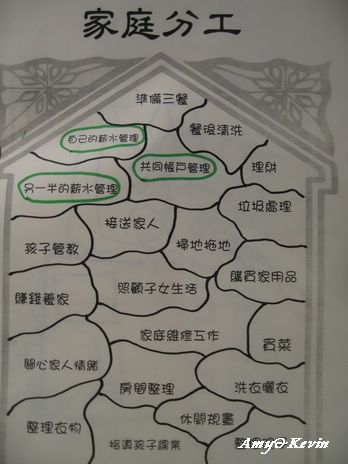 家庭分工
準備三餐
自己的薪水管理
餐後清洗
共同帳戶管理
理財
另一半的薪水管理
垃圾處理
接送家人
掃地拖地
孩子管教
照顧子女生活
購買家用品
賺錢養家
家庭維修工作
買菜
關心家人情緒
房間整理
洗衣曬衣
休閒規畫
整理衣物
指導孩子課業
Amy&Kevin